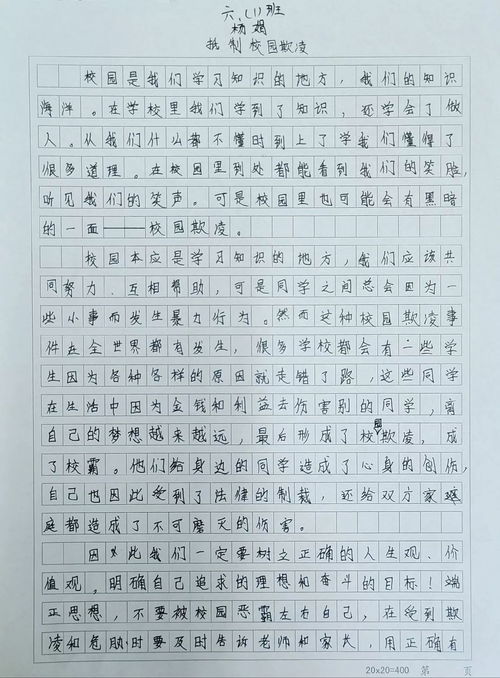 六.(1)班
杨娟
抵制校园欺凌
校园是我们学习知识的地方，我们的知识
海洋。在学校里我们学到了知识，还学会了做
人。从我们什么都不懂时到上了学我们懂得了
很多道理。在校园里到处都能看到我们的笑脸，
听见我们的笑声。可是校园里也可能会有黑暗
的一面——校园欺凌。
校园本应是学习知识的地方，我们应该共
同努力、互相帮助，可是同学之间总会因为一
些小事而发生暴力行为。然而这种校园欺凌事
件在全世界都有发生，很多学校都会有一些学
生因为各种各样的原因就走错了路，这些同学
在生活中因为金钱和利益去伤害别的同学，离
自己的梦想越来越远，最后形成了校园欺凌，成
了校霸。他们给身边的同学造成了心身的创伤，
自己也因此受到了法律的制裁，还给双方家
庭都造成了不可磨灭的伤害。
因此我们一定要树立正确的人生观、价
值观，明确自己追求的理想和奋斗的目标！端
正思想，不要被校园恶霸左右自己，在受到欺
凌和危胁时要及时告诉老师和家长，用正确有
20x20=400 第 页